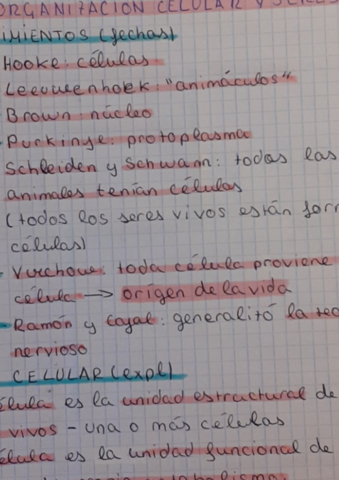 ORGANIZACIÓN CELULAR Y
IMIENTOS (fechas)
Hooke: células
Leeuwenhoek: "animáculos"
Brown: núcleo
Purkinge: protoplasma
Schleiden y Schwann: todas las
animales tenían células
(todos los seres vivos están for
células)
Virchowe: toda célula proviene
célula → origen de la vida
- Ramón y Cajal: generalitó la teo
nervioso
CELULAR (expl)
élula es la unidad estructural de
vivos - una o más células
élula es la unidad funcional de